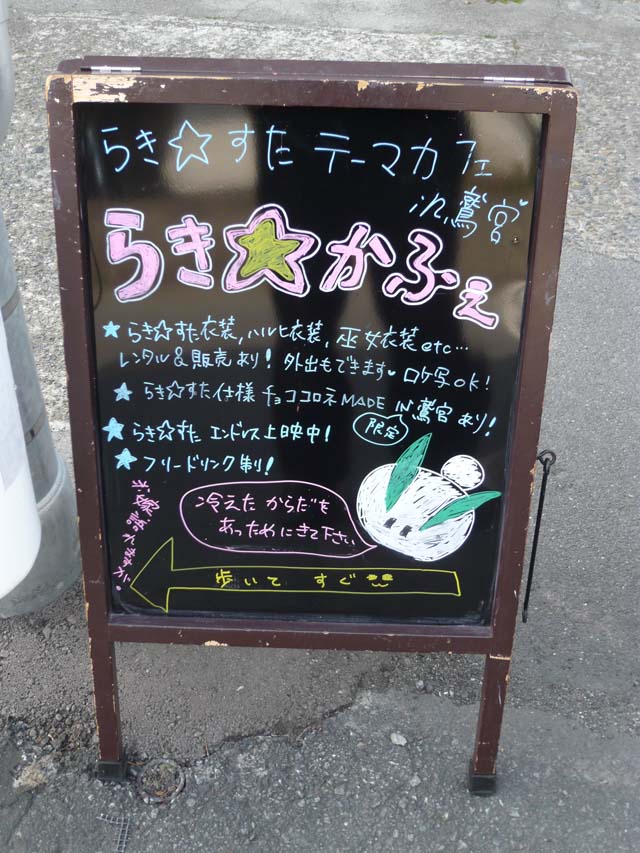 らき☆すた テーマカフェ
in鷲宮
らき☆かふぇ
★ らき☆すた衣装, ハルヒ衣装, 巫女衣装 etc…
レンタル&販売あり! 外出もできます♥ ロケ写ok!
★ らき☆すた仕様 チョココロネ MADE IN 鷲宮 あり!
限定
★ らき☆すた エンドレス上映中!
★ フリードリンク制!
冷えた からだを
あっためにきて下さい
歩いて すぐ